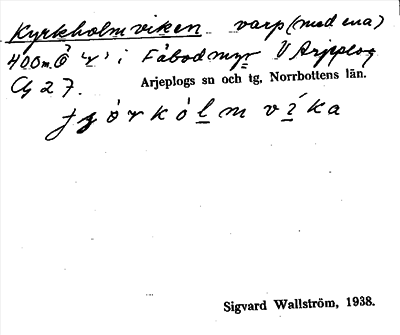 Kyrkholmviken varp (med ena)
400 m. Ö i Fäbodmyr V Arjeplog
Cg 27. Arjeplogs sn och tg, Norrbottens län.
Sigvard Wallström, 1938.